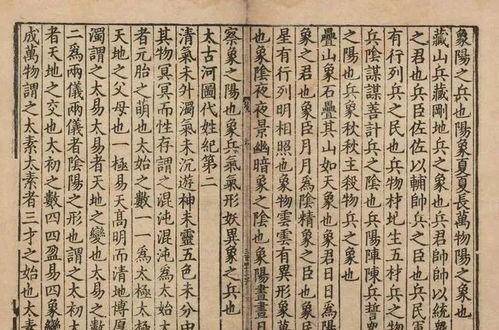 象陽之兵也陽象夏夏長萬物陽之象也
藏山兵藏剛地兵之象也兵君帥帥以統
之君也兵臣佐佐以輔帥兵之臣也兵
有行列兵之民也兵物材圠生五材兵之物
兵陰謀謀善計兵之陰也兵陽陣陳兵誓
之陽也兵象秋秋主殺物兵之象也
疊山象石疊其山如天象也象君日日爲陽
之君也象臣月月爲陰精象之臣也象
星有行列明相照也象物雲雲有異形象
也象陰夜夜景幽暗象之陰也象陽晝晝日
察象之陽也象兵氣氣形妖異象之兵也
太古河圖代姓紀第二
清氣未外濁氣未沉遊神未靈五色未分中
其物冥冥而性存謂之混沌混沌爲太始太
者元胎之萌也太始之數一一爲太極太極
天地之父母也一極易天髙明而清地博厚
濁謂之太易太易者天地之變也太易之數
二爲兩儀兩儀者陰陽之形也謂之太初太
者天地之交也太初之數四四盈易四象變
成萬物謂之太素太素者三才之始也太素